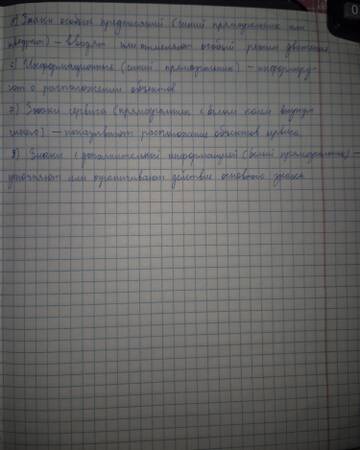 5) Знаки особых предписаний (синий прямоугольник или
квадрат) – вводят или отменяют особый режим движения
6) Информационные (синий прямоугольник) – информиру-
ют о расположении объектов
7) Знаки сервиса (прямоугольник с белым полем внутри
синего) – показывают расположение объектов сервиса
8) Знаки дополнительной информации (белый прямоугольник) –
уточняют или ограничивают действие основного знака